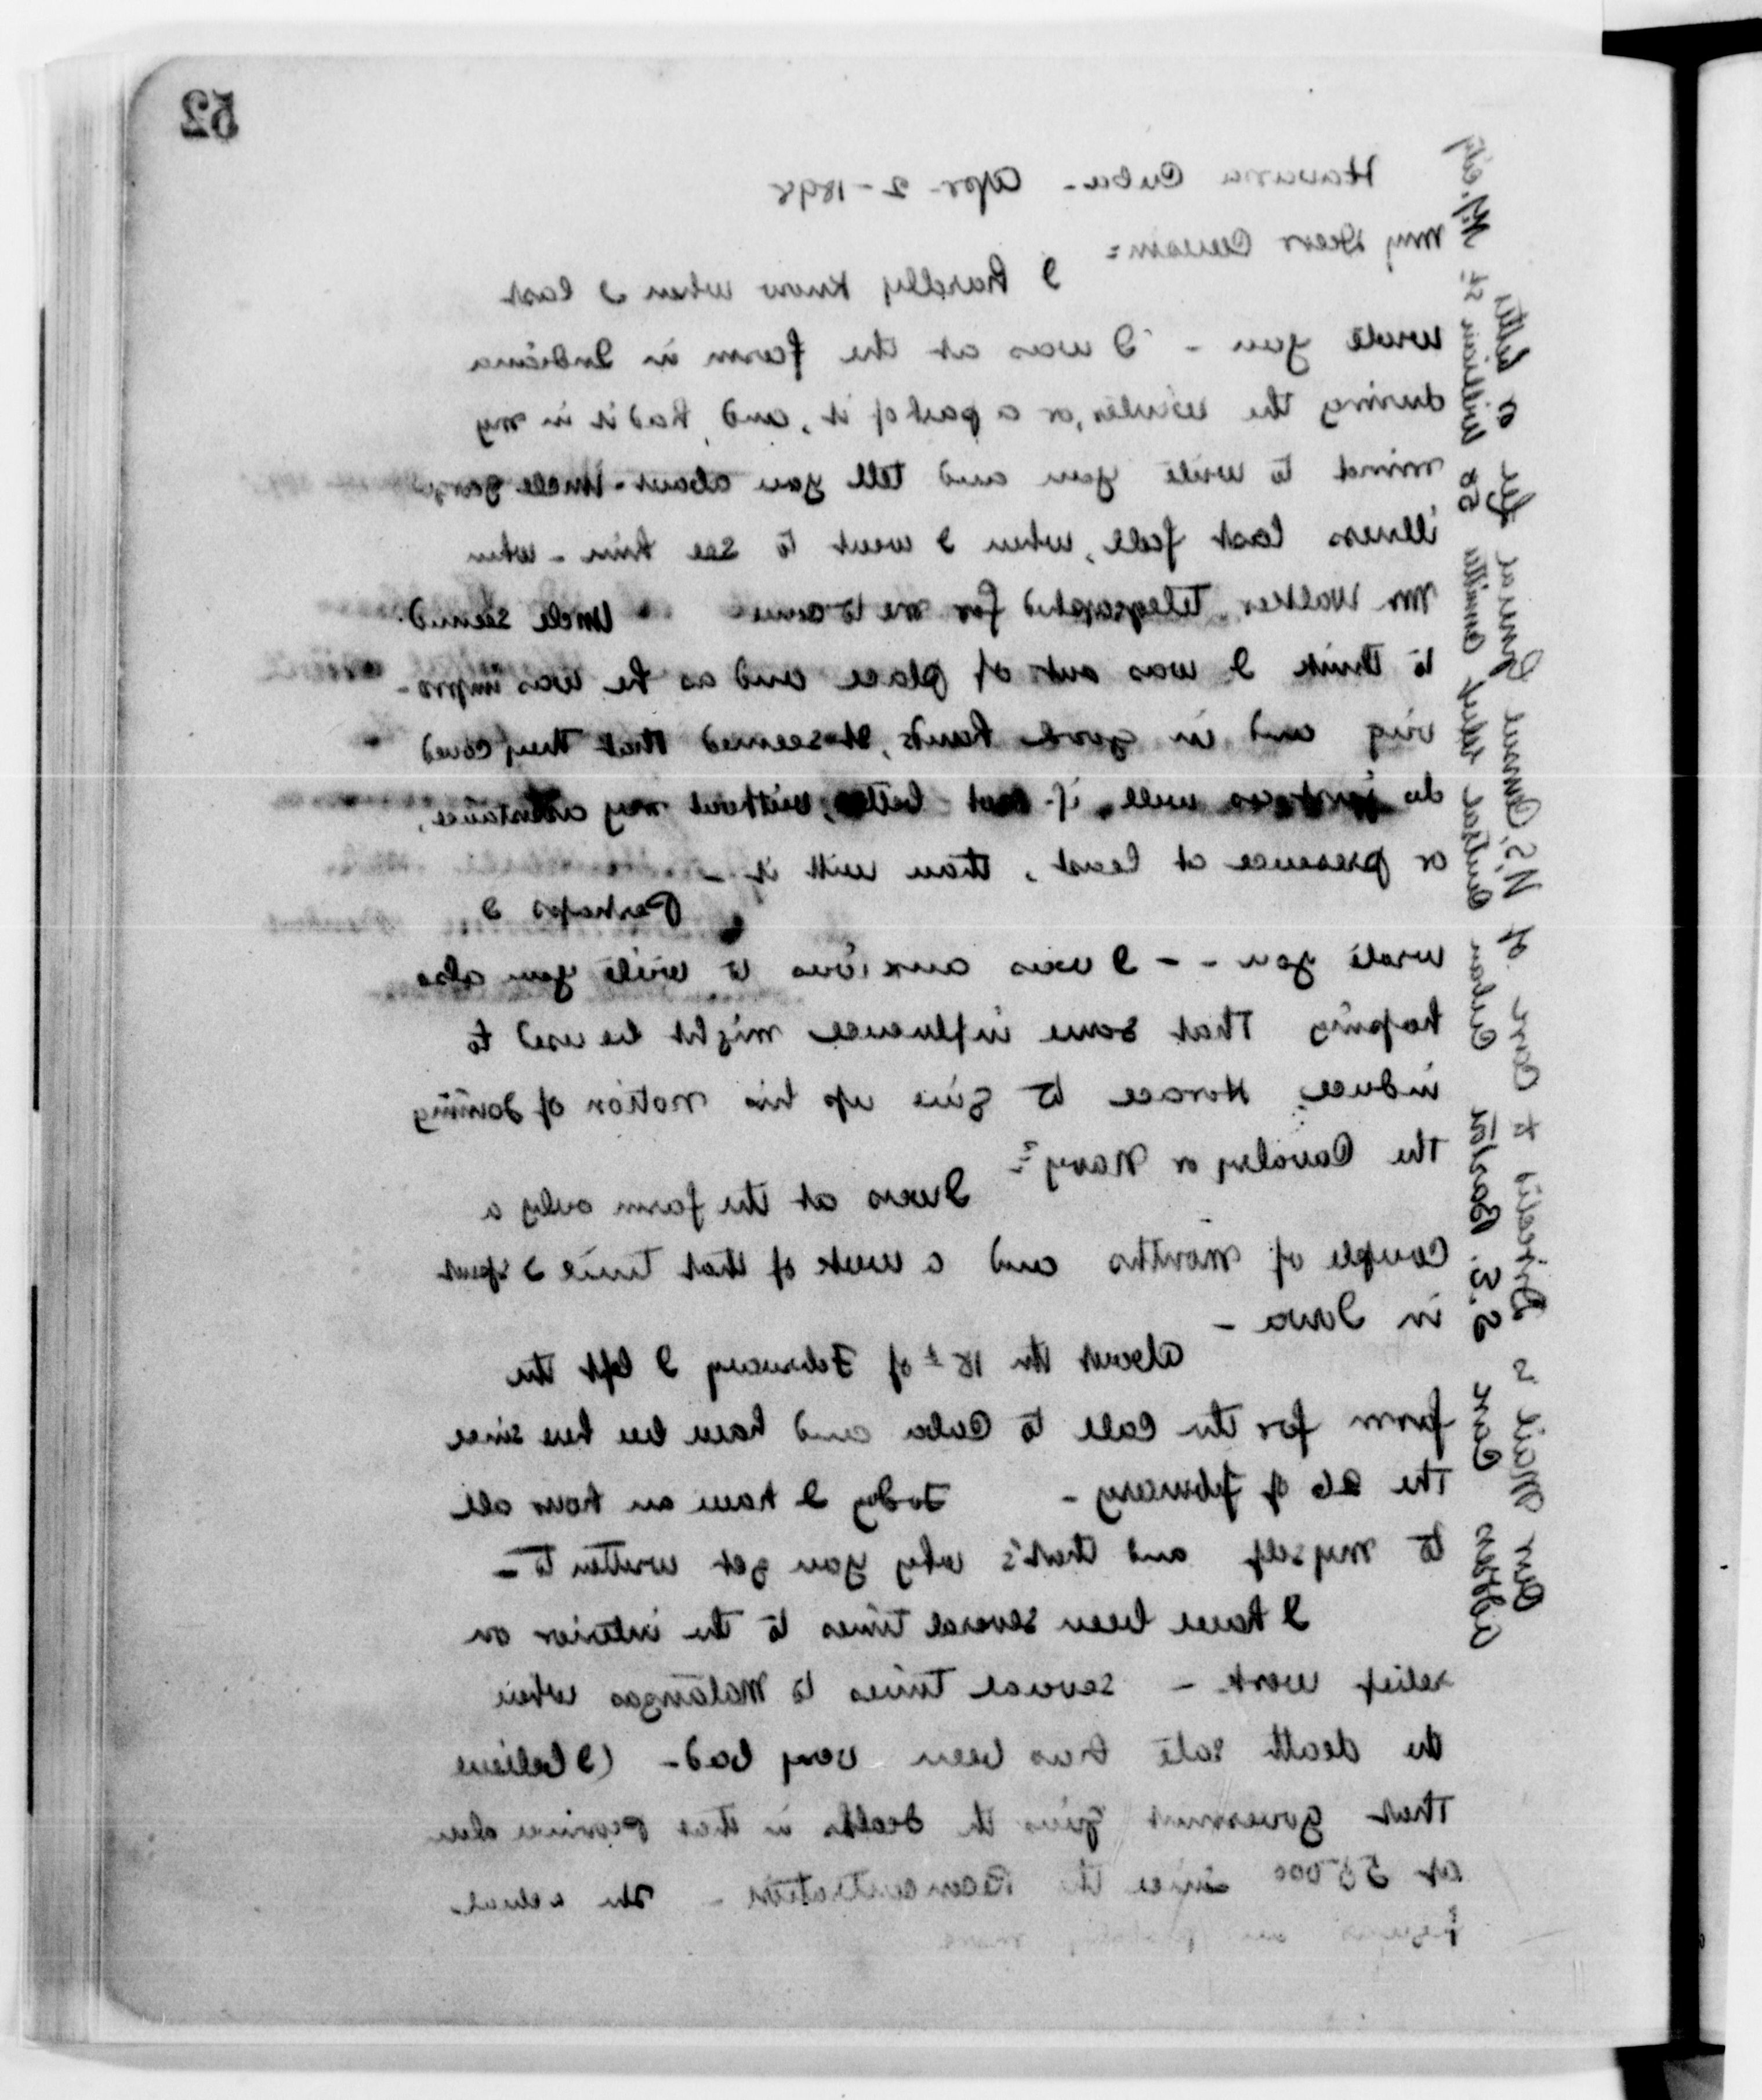 52
Havana Cuba - Apr - 2 - 1898
My Dear Cousin =
I hardly know when I last
wrote you - I was at the farm in Indiana
during the winter, or a part of it, and, had it in my
mind to write you and tell you about Uncle
illness last fall, when I went to see him - when
Mr Walker telegraphed for me to come Uncle seemed
to think I was out of place and as he was impro-
ving and in good hands, it seemed that they coud
do just as well, if not better, without my assistance,
or presence at least, than with it -
Perhaps I
wrote you - - I was anxious to write you also
hoping that some influence might be used to
induce Horace to give up his notion of joining
the Cavalry or Navy =
I was at the farm only a
couple of months and a week of that time I spent
in Iowa -
About the 18th of February I left the
farm for the call to Cuba and have been here since
the 26 of February - Today I have an hour all
to myself and that's why you get written to -
I have been several times to the interior on
relief work - several times to Matanzas where
the death rate has been very bad - (I believe
that government gives the deaths in that province alone
at 55000 since the Reconcentration - The actual
are more
Our Mail is Directed to Care of U.S. Consul General Lee a letter
Address Care C.B. Barton Cuban Central Relief Committee 58 William St N.Y. City